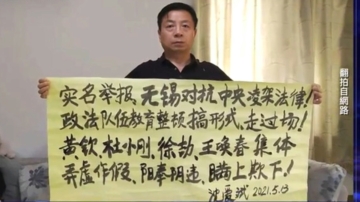 实名举报、无锡对抗中央凌弈法律！
政法队伍教育整顿搞形式、走过场！
黄钦、杜小刚、徐劼、王唤春集体
弄虚作假、阳奉阴违、瞒上欺下！
沈爱斌 2021.5.13
翻拍自網路